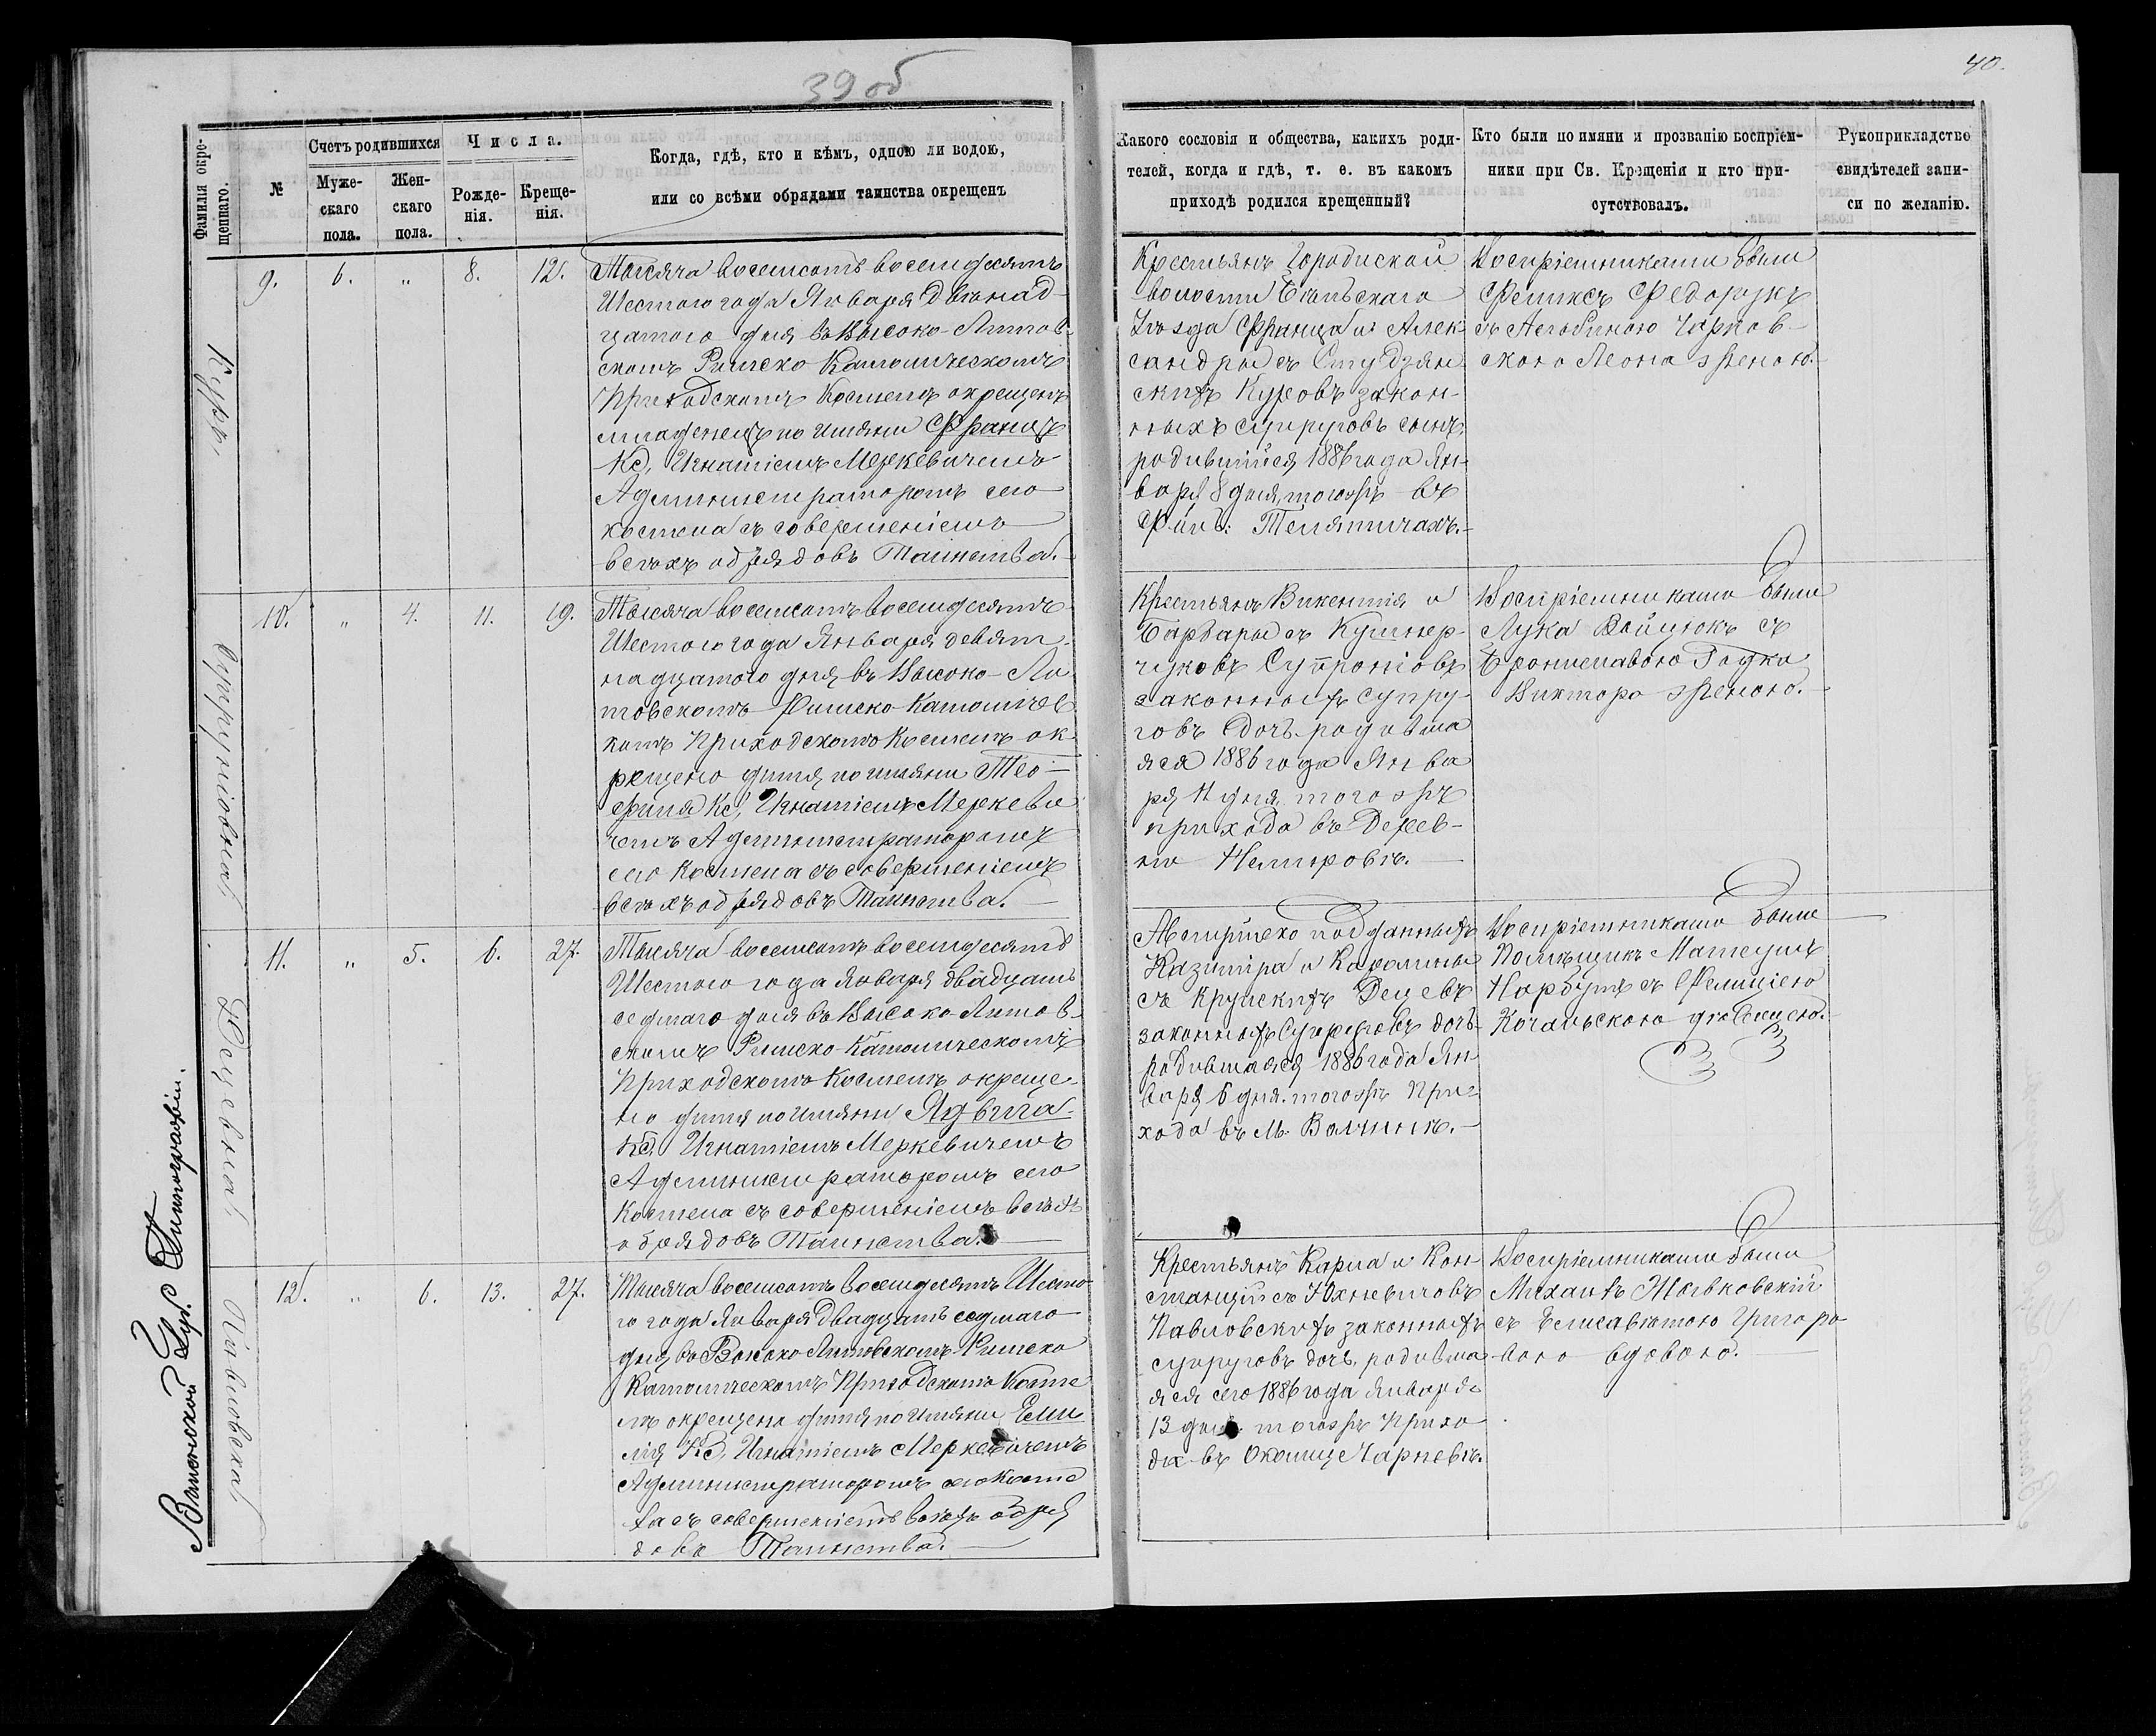 39 об
40.
Фамилія окре-
щеннаго.
№
Счетъ родившихся
Муже-
скаго
пола.
Жен-
скаго
пола.
Числа.
Рожде-
нія.
Креще-
нія.
Когда, гдѣ, кто и кѣмъ, одною ли водою,
или со всѣми обрядами таинства окрещенъ
Какого сословія и общества, какихъ роди-
телей, когда и гдѣ, т. е. въ какомъ
приходѣ родился крещенный?
Кто были по имяни и прозванію воспріем-
ники при Св. Крещенія и кто при-
сутствовалъ.
Рукоприкладство
свидѣтелей запи-
си по желанію.
9. 6. „ 8. 12.
Тысяча восемсотъ восемдесятъ
Шестого года Января двѣнад-
цатого дня въ Высоко-Литов-
скомъ Римско Католическомъ
Приходскомъ Костелѣ окрещенъ
младенецъ по имяни Францъ
Кс. Игнатіемъ Меркевичемъ
Администраторомъ сего
костела съ совершеніемъ
всѣхъ обрядовъ Таинства.
Крестьянъ
волости Бѣльскаго
Уѣзда Франца и Алек-
сандры съ Студзян-
скихъ Куровъ закон-
ныхъ супруговъ сынъ
родившійся 1886 года Ян-
варя 8 дня, тогожъ въ
Телятичахъ.
Воспріемниками были
Феликсъ Федорукъ
съ
Леона женою.
10. „ 4. 11. 19.
Супруніовна
Тысяча восемсотъ восемдесятъ
Шестого года Января девят-
надцатого дня въ Высоко-Ли
товскомъ Римско-Католичес
комъ Приходскомъ Костелѣ ок-
рещено дитя по имяни Тео-
филя Кс. Игнатіемъ Меркеви
чемъ Администраторомъ
сего Костела съ совершеніемъ
всѣхъ обрядовъ Таинства.
Крестьянъ Викентія и
Барбары съ Кушнер-
чуковъ Супроніовъ
законныхъ супру-
говъ дочь родивша
яся 1886 года Янва
ря 11 дня, тогожъ
прихода въ Дерев-
нѣ Немировѣ.
Воспріемниками были
Лука Войцюкъ съ
Брониславою
Виктора женою.
11. „ 5. 6. 27.
Децевна
Тысяча восемсотъ восемдесятъ
Шестого года Января двадцать
седмаго дня въ Высоко-Литов-
скомъ Римско-Католическомъ
Приходскомъ Костелѣ окреще-
но дитя по имяни Ядвига
Кс. Игнатіемъ Меркевичемъ
Администраторомъ сего
Костела съ совершеніемъ всѣхъ
обрядовъ Таинства.
Австрійско подданныхъ
Казиміра и Каролины
съ Крупскихъ Децевъ
законныхъ Супруговъ дочь
родившаяся 1886 года Ян
варя 6 дня, тогожъ При-
хода въ М. Волчинѣ.
Воспріемниками были
Помѣщикъ Матеушъ
Нарбутъ съ Фелиціею
Кочанскою дѣвицею.
12. „ 6. 13. 27.
Павловска
Тысяча восемсотъ восемдесятъ Шесто
го года Января двадцать седмаго
дня, въ Высоко Литовскомъ Римско
Католическомъ Приходскомъ Косте
лѣ окрещено дитя по имяни Еми
лія Кс. Игнатіемъ Меркевичемъ
Администраторомъ сего Косте
ла съ совершеніемъ всѣхъ обря
довъ Таинства.
Крестьянъ Карла и Кон
станціи съ Юхневичовъ
Павловскихъ законныхъ
супруговъ дочь, родивша
яся сего 1886 года Января
13 дня тогожъ Прихо
да въ Околицѣ Чарневѣ.
Воспріемниками были
Михаилъ Жолковскій
съ Елисавѣтою Григоро
вою вдовою.
Виленской Губ. Типографіи.